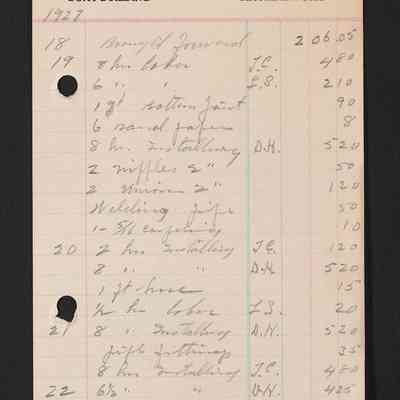 1927
18 Brought Forward 206.05
19 8 hrs labor J.C. 4 80
6 " " L.S. 2 10
1 gal bottom paint 90
6 sand paper 8
8 hrs Installing D.H. 5 20
2 nipples 2" 50
2 unions 2" 1 20
Welding pipe 50
10
20 2 hrs Installing J.C. 1 20
8 " " D.H. 5 20
1 ft hose 15
½ hr labor L.S. 20
21 8 " Installing D.H. 5 20
pipe fittings 35
8 hrs Installing J.C. 4 80
22 6½ " " D.H. 4 25